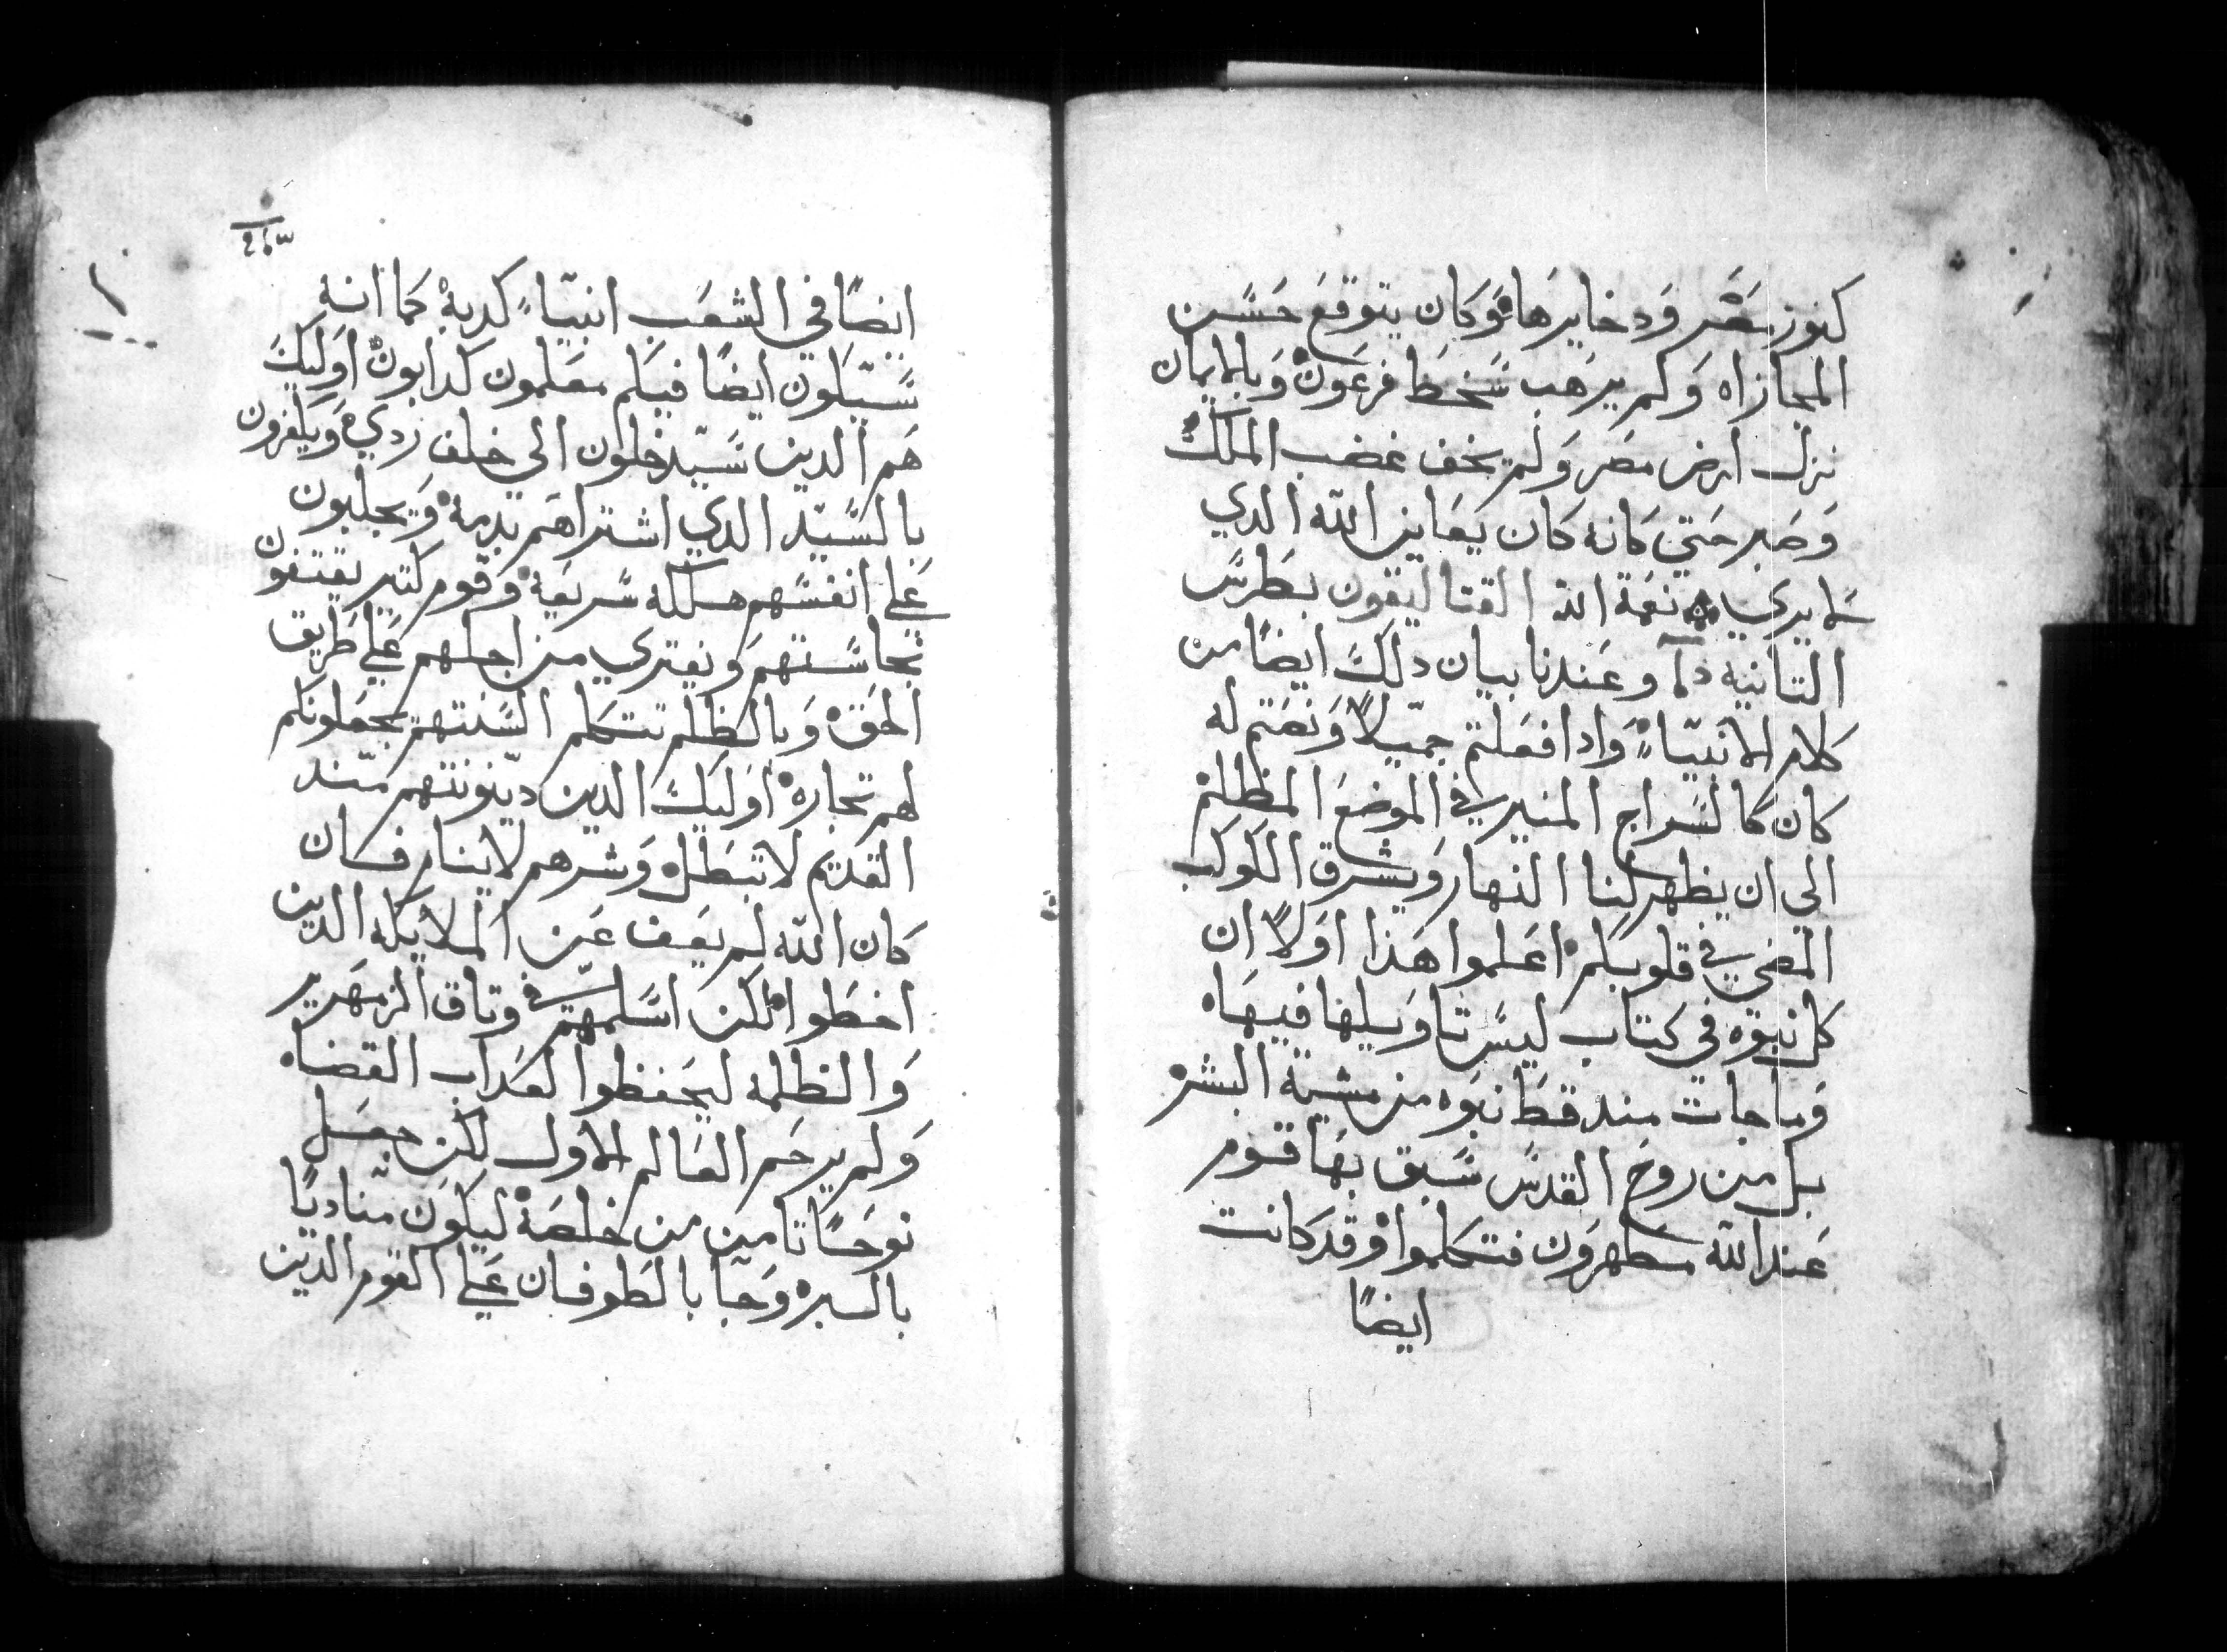 كنوز مصر ودخايرها وكان يتوقع حسن
المجازاه ولم يرهب سخط فرعون وبالايمان
نزل ارض مصر ولم يخف غضب الملك
وصبر حتي كانه كان يعاين الله الدي
لا يري نعمة الله القتاليقون بطرس
التانيه وعندنا بيان دلك ايضًا من
كلام الانبيّاء وادا فعلتم جميّلاً ونصتم له
كان كالسراج المنير في الموضع المظلم
الي ان يظهر لنا النهار ويشرق الكوكب
المضي في قلوبكم اعلموا هذا اولاً ان
كل نبوه في كتاب ليس تاويلها فيها
وما جات مند قط نبوه من مشية البشر
بل من روح القدس سبق بها قوم
عند الله مطهرون فتكلموا وقد كانت
ايضًا
ايضًا في الشعب انبيّاء كدبة كما انه
سيكون ايضًا فيكم معلمون كدابون اوليك
هم الدين سيّدخلون الي خلف ردي ويكفرون
بالسيّد الدي اشتراهم بدمة ويجلبون
علي انفسهم هلكه سريعة وقوم كتير يقتفون
نجاستهم ويفتري من اجلهم علي طريق
الحق وبالظلم تتكلم السنتهم يجعلونكم
لهم تجارة اوليك الدين ديّنونتهم منّد
القديم لا تبطل وشرهم لا ينام فان
كان الله لم يعف عن الملايكه الدين
اخطوا لكن اسلمهم في وتاق الزمهرير
والظلمه ليحفظوا لعداب القضاه
ولم يرحم العالم الاول لكن جعل
نوحًا تامن من خلصة ليكون منّاديًا
بالبره وجا بالطوفان علي القوم الدين